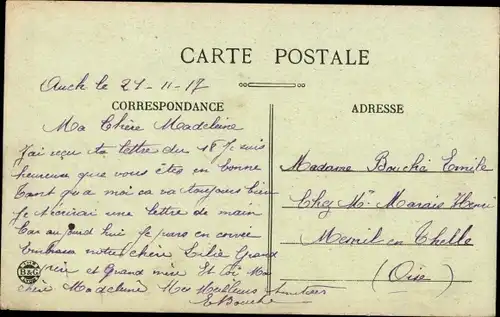 CARTE POSTALE
Auch le 21-11-17
CORRESPONDANCE
ADRESSE
Ma Chère Madeleine
J'ai reçu ta lettre du 18 Je suis
heureuse que vous êtes en bonne
Tant qu'a moi sa va toujours bien
Je t'écrirai une lettre de main
Car aujourd hui Je pars en corvée
Embrasse notre chère Lilie Grand
père et Grand mère Et toi Ma
chère Madeleine Mes Meilleurs
E Bouché
Madame Bouché Emile
Chez Mr Marais Henri
Mesnil en Thelle
(Oise)
B&G